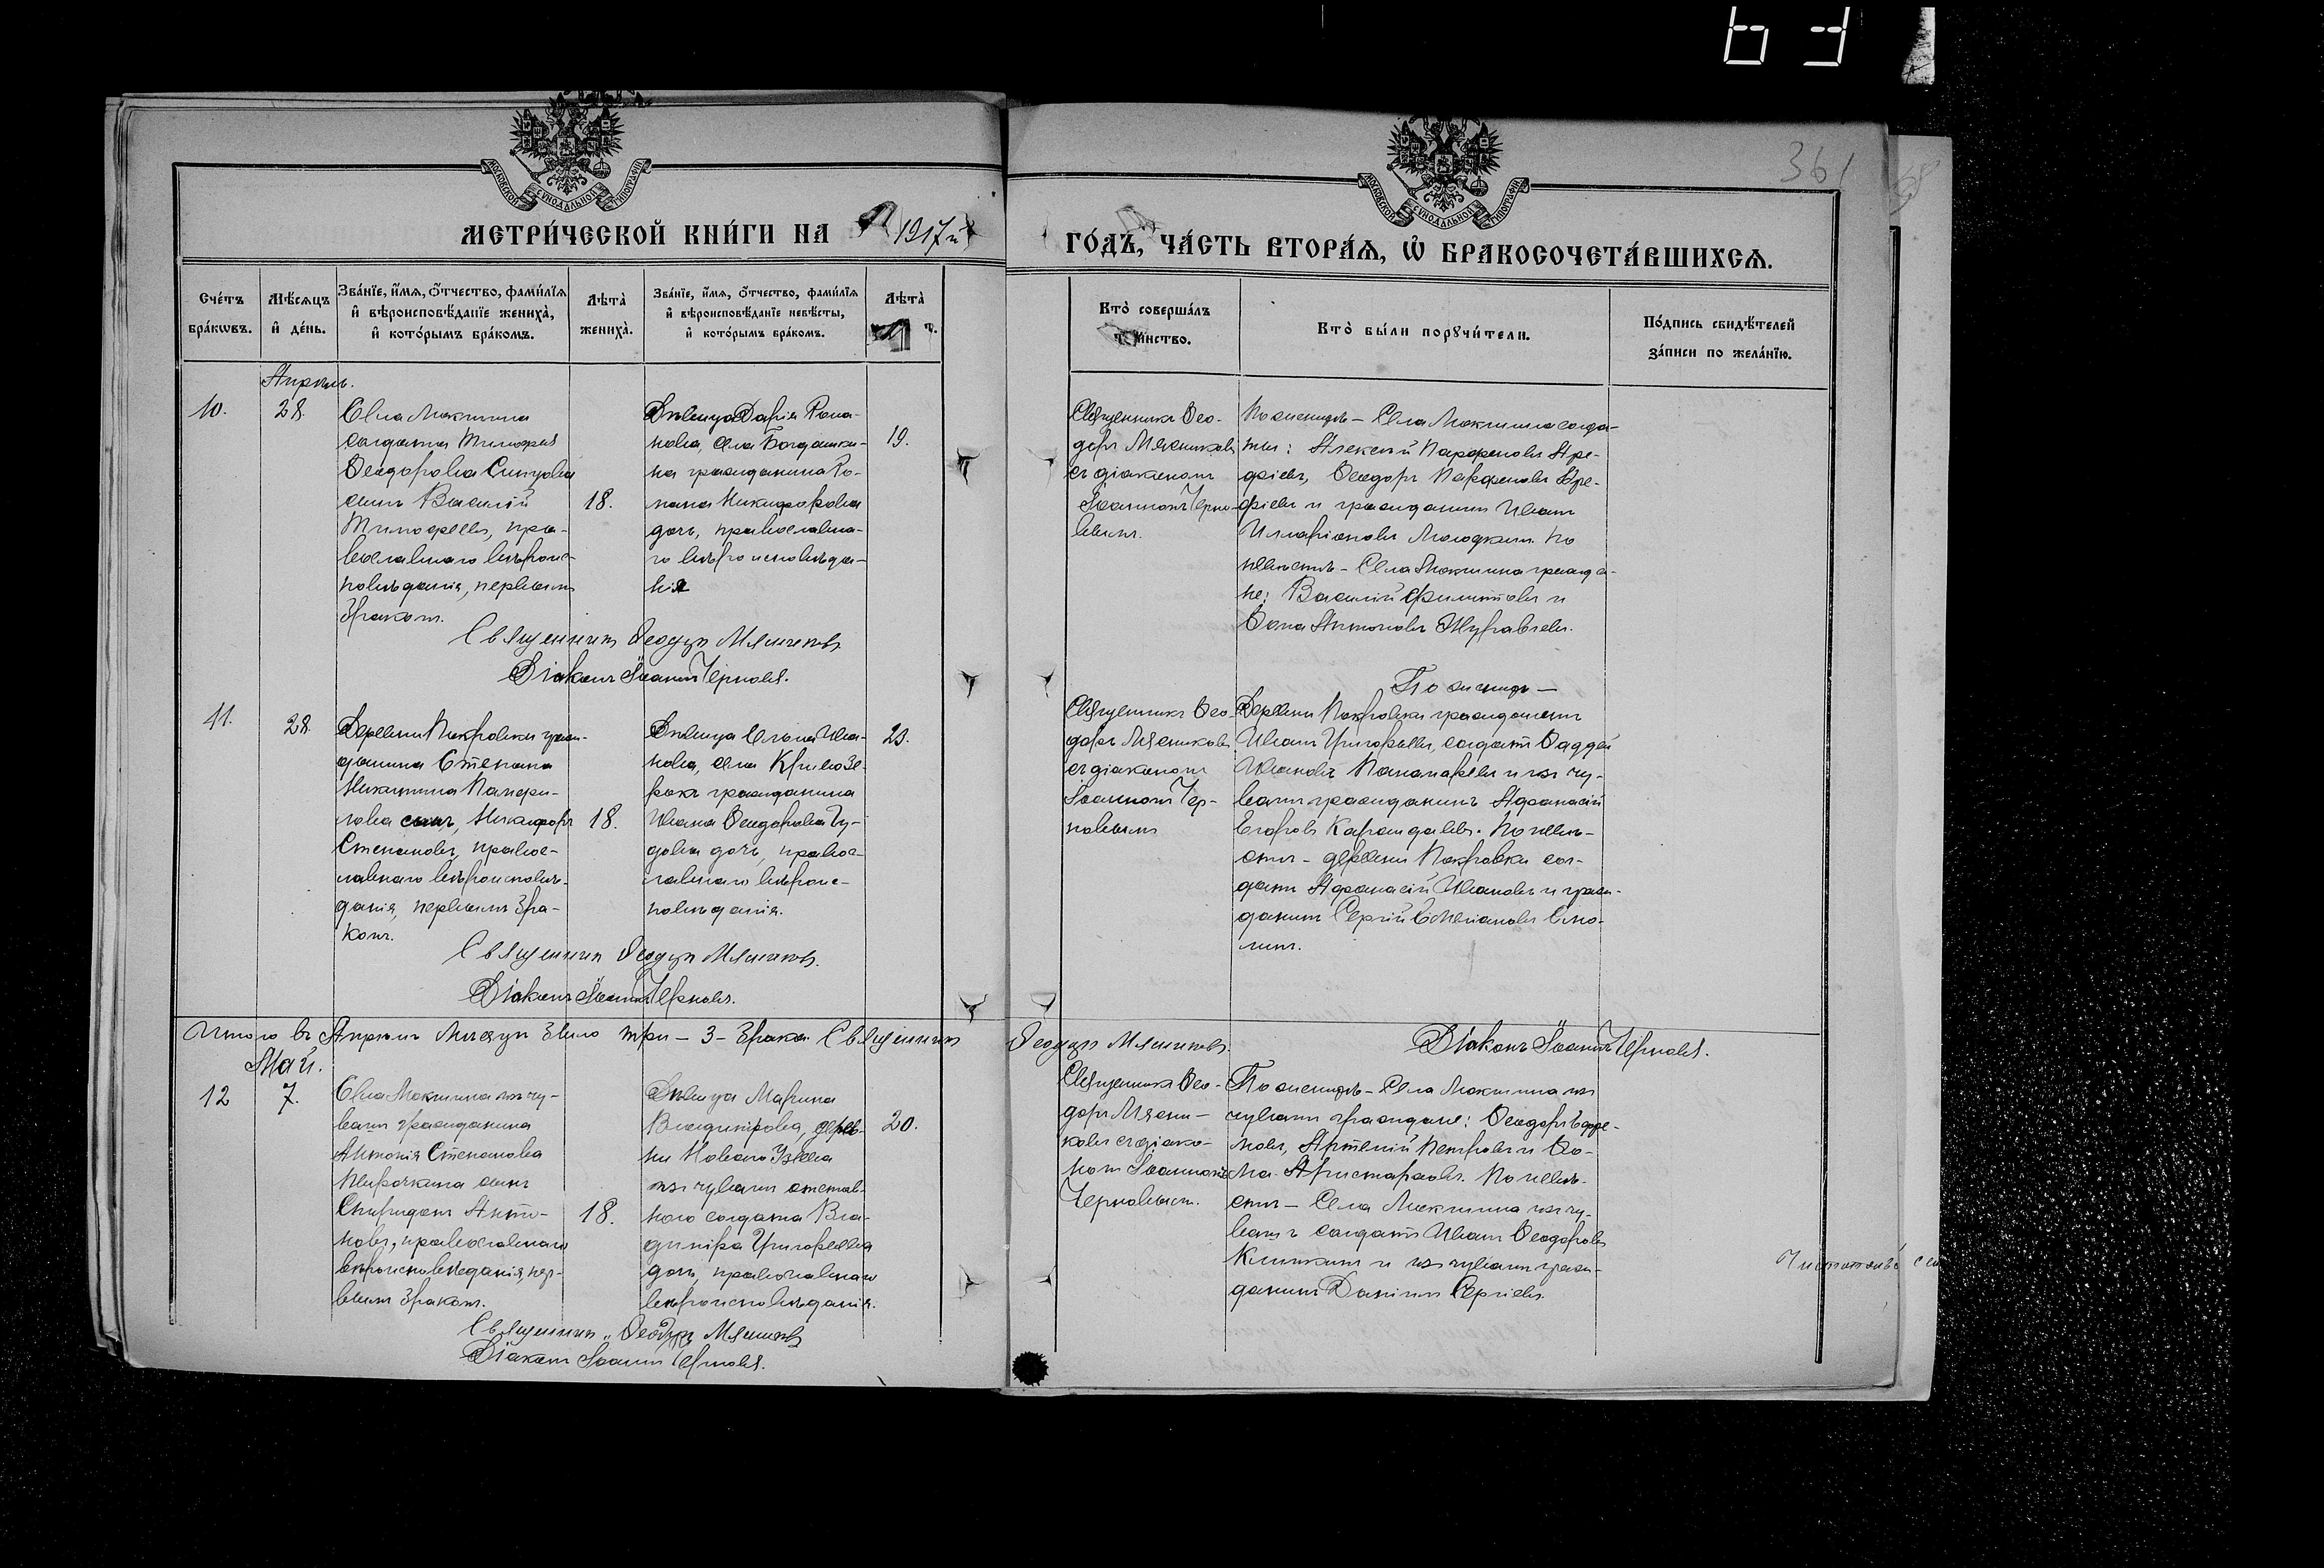 63
361
МОСКОВСКОЙ СѴНОДАЛЬНОЙ ТИПОГРАФІИ
МОСКОВСКОЙ СѴНОДАЛЬНОЙ ТИПОГРАФІИ
МЕТРИ́ЧЕСКОЙ КНИ́ГИ НА 1917й
ГО́ДЪ, ЧА́СТЬ ВТОРА́Ѧ, Ѡ҆ БРАКОСОЧЕТА́ВШИХСѦ.
Сче́тъ бра́кѡвъ.
Мѣ́сѧцъ и҆ де́нь.
Зва́нїе, и҆́мѧ, ѻ҆́тчество, фами́лїѧ
и҆ вѣроисповѣ́данїе жениха̀,
и҆ кото́рымъ бра́комъ.
Лѣта̀ жениха̀.
Зва́нїе, и҆́мѧ, ѻ҆́тчество, фами́лїѧ
и҆ вѣроисповѣ́данїе невѣ́сты,
и҆ кото́рымъ бра́комъ.
Лѣта̀
Кто̀ соверша́лъ
та́инство.
Кто̀ бы́ли порꙋчи́тели.
По́дпись свидѣ́телей
за́писи по жела́нїю.
Апрѣль.
10.
28.
Села Мокшина
солдата Тимофея
Ѳеодорова
сынъ Василій
Тимофеевъ, пра-
вославнаго вѣроис-
повѣданія, первымъ
бракомъ.
18.
Дѣвица Дарія Рома-
нова, села Богдашки-
на гражданина Ро-
мана Никифорова
дочь, православна-
го вѣроисповѣда-
нія
19.
Священникъ Ѳео-
доръ Мясниковъ
съ діакономъ
Іоанномъ Черно-
вымъ.
По женихѣ – Села Мокшина солда-
ты: Алексѣй Парфеновъ Аре-
фіевъ, Ѳеодоръ Парфеновъ Аре-
фіевъ и гражданинъ Иванъ
Илларіоновъ Молодкинъ. По
невѣстѣ – Села Мокшина гражда-
не: Василій Филипповъ и
Ѳома Антоновъ Журавлевъ.
Священникъ Ѳеодоръ Мясниковъ
Діаконъ Іоаннъ Черновъ.
11.
28.
Деревни Покровки граж-
данина Степана
Никитина Памфи-
лова сынъ, Никифоръ
Степановъ, правос-
лавнаго вѣроисповѣ-
данія, первымъ бра-
комъ.
18.
Дѣвица Елена Ива-
нова, села Кривозе-
рокъ гражданина
Ивана Ѳеодорова Чу-
дова дочь, правос-
лавнаго вѣроис-
повѣданія.
23.
Священникъ Ѳео-
доръ Мясниковъ
съ діакономъ
Іоанномъ Чер-
новымъ
По женихѣ –
Деревни Покровки гражданинъ
Иванъ Григорьевъ, солдатъ Ѳаддей
Ивановъ Пономаревъ и изъ чу-
вашъ гражданинъ Афанасій
Егоровъ Карандаевъ. По невѣ-
стѣ – деревни Покровки сол-
датъ Афанасій Ивановъ и граж-
данинъ Сергій Степановъ Смо-
линъ.
Священникъ Ѳеодоръ Мясниковъ.
Діаконъ Іоаннъ Черновъ.
Итого въ Апрѣлѣ мѣсяцѣ было три – 3 – брака. Священникъ Ѳеодоръ Мясниковъ. Діаконъ Іоаннъ Черновъ.
Май.
12
7.
Села Мокшина изъ чу-
вашъ гражданина
Антонія Степанова
сынъ
Спиридонъ Анто-
новъ, православнаго
вѣроисповѣданія, пер-
вымъ бракомъ.
18.
Дѣвица Марина
Владимірова, дерев-
ни Новаго Узеева
изъ чувашъ отстав-
ного солдата Вла-
диміра Григорьева
дочь, православнаго
вѣроисповѣданія.
20.
Священникъ Ѳео-
доръ Мясни-
ковъ съ діако-
номъ Іоанномъ
Черновымъ.
По женихѣ – Села Мокшина изъ
чувашъ граждане: Ѳеодоръ Ефре-
мовъ, Артемій Петровъ и Ѳо-
ма Аристарховъ. По невѣ-
стѣ – Села Мокшина изъ чу-
вашъ солдатъ Иванъ Ѳеодоровъ
Климкинъ и изъ чувашъ граж-
данинъ Даніилъ Сергіевъ.
Священникъ Ѳеодоръ Мясниковъ
Діаконъ Іоаннъ Черновъ.